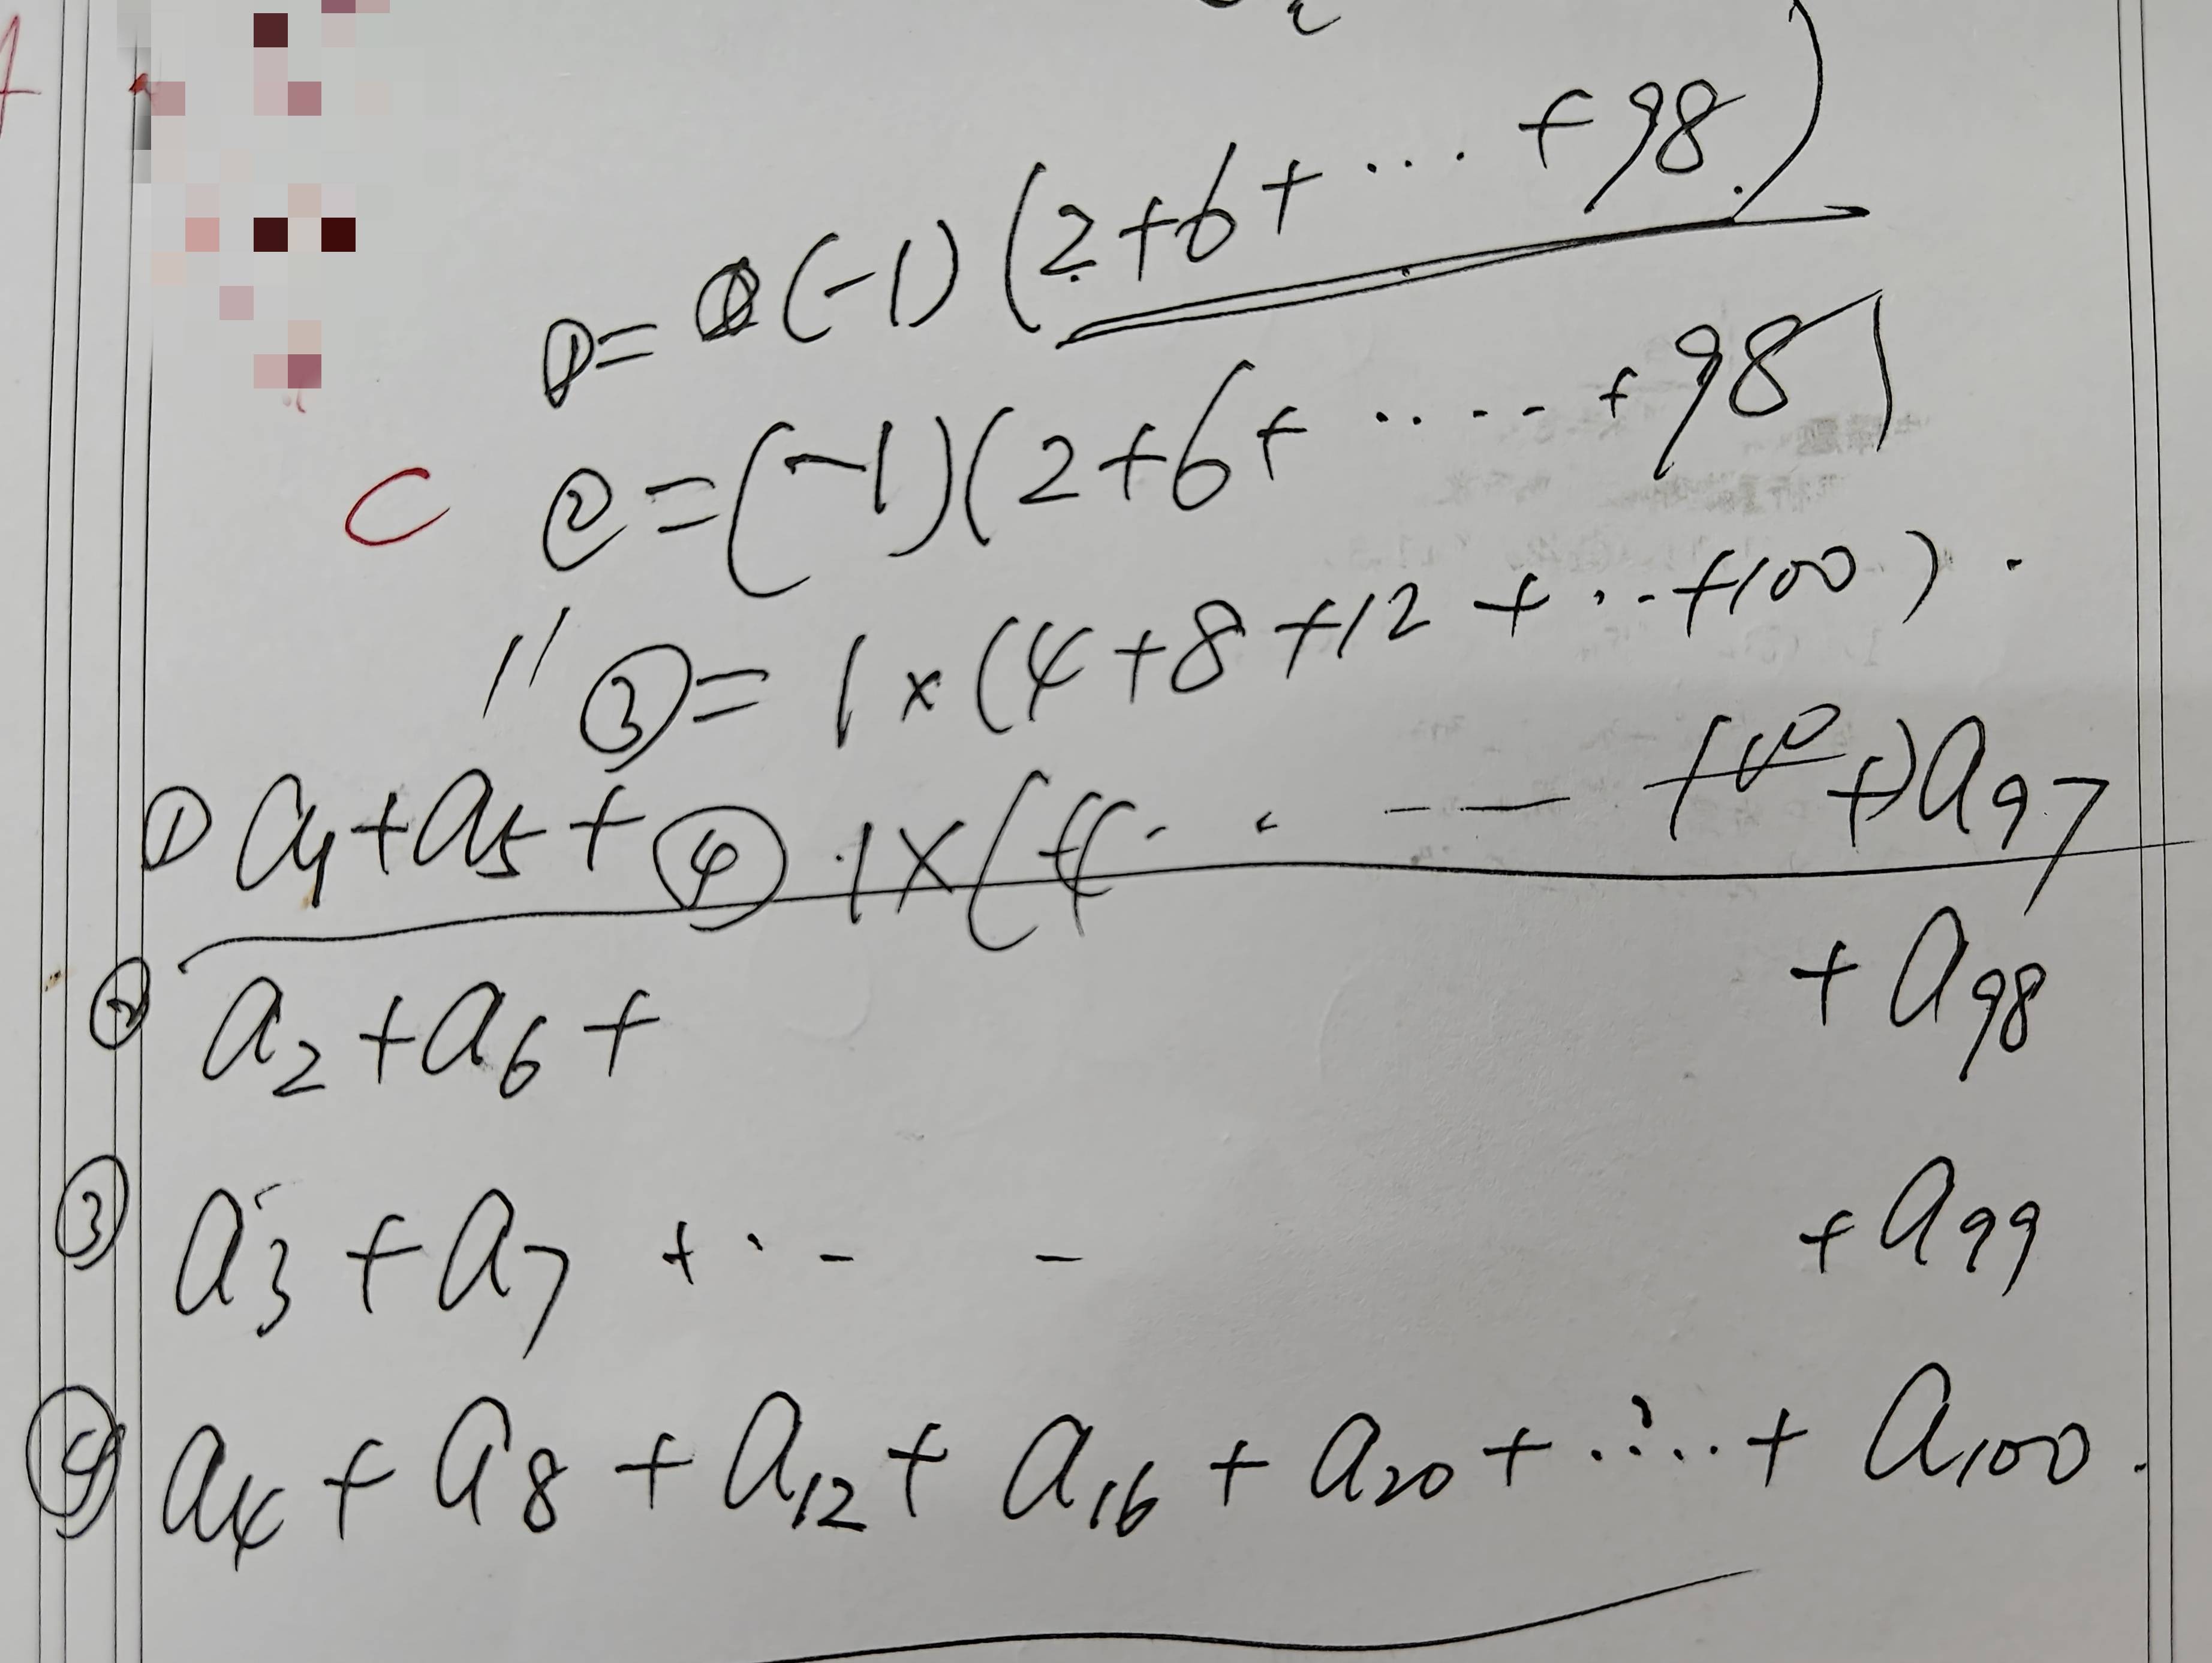 ①= (-1)(2+6+····+98)
C ②=(-1)(2+6+·····+98)
③= 1×(4+8+12+···+100).
①a₁+a₅+ +a₉₇
④ 1×(4· · — — +100)
②a₂+a₆+ +a₉₈
③a₃+a₇+·- - +a₉₉
④a₄+a₈+a₁₂+a₁₆+a₂₀+·····+a₁₀₀.